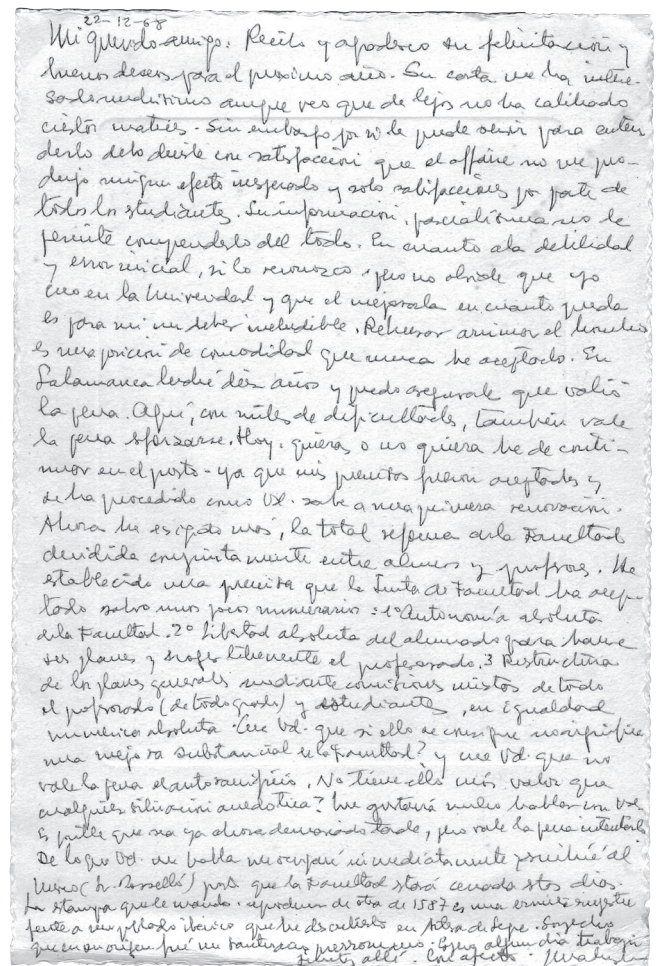 22-12-68
Mi querido amigo: Recibo y agradezco su felicitación y
buenos deseos para el proximo año. Su carta me ha intere-
sado muchisimo aunque veo que de lejos no ha calibrado
ciertos matices. Sin embargo por si le puede servir para enten
derlo debo decirle con satisfacción que el affaire no me pro-
dujo ningun efecto inesperado y solo satisfacciones por parte de
todos los estudiantes. Su informacion parcialisima no le
permite comprenderlo del todo. En cuanto a la debilidad
y error inicial, si lo reconozco, pero no olvide que yo
creo en la Universidad y que el mejorarla en cuanto pueda
es para mi un deber ineludible. Rehusar arrimar el hombro
es una posicion de comodidad que nunca he aceptado. En
Salamanca luché diez años y puedo asegurarle que valió
la pena. Aqui, con miles de dificultades, también vale
la pena esforzarse. Hoy, quiera o no quiera he de conti-
nuar en el puesto - ya que mis fueron aceptadas y
se ha procedido como Vd. sabe a una primera renovación.
Ahora he exigido mas, la total reforma de la Facultad
decidida conjuntamente entre alumnos y profesores. He
establecido una premisa que la Junta de Facultad ha acep
tado salvo unos pocos numerarios: 1º Autonomía absoluta
de la Facultad. 2º Libertad absoluta del alumnado para hacer
sus planes y escoger libremente el profesorado. 3 Restructura
de los planes generales mediante comisiones mixtas de todo
el profesorado (de todo grado) y estudiantes, en igualdad
numerica absoluta. Cree Vd. que si ello se consigue no significa
una mejora substancial de la Facultad? y cree Vd. que no
vale la pena el autosacrificio. No tiene ello más valor que
cualquier situación anecdotica? Me gustaria mucho hablar con Vd.
Es posible que sea ya ahora demasiado tarde, pero vale la pena intentarlo
De lo que Vd. me habla me ocuparé inmediatamente escribiré al
Museo (Sr. Rosselló) pues que la Facultad estará cerrada estos dias.
La estampa que le mando, de otra de 1587 es una ermita
frente a un poblado ibérico que he descubierto en
que en su origen fué un santuario. Espero algun dia trabajar
allí. Con afecto.